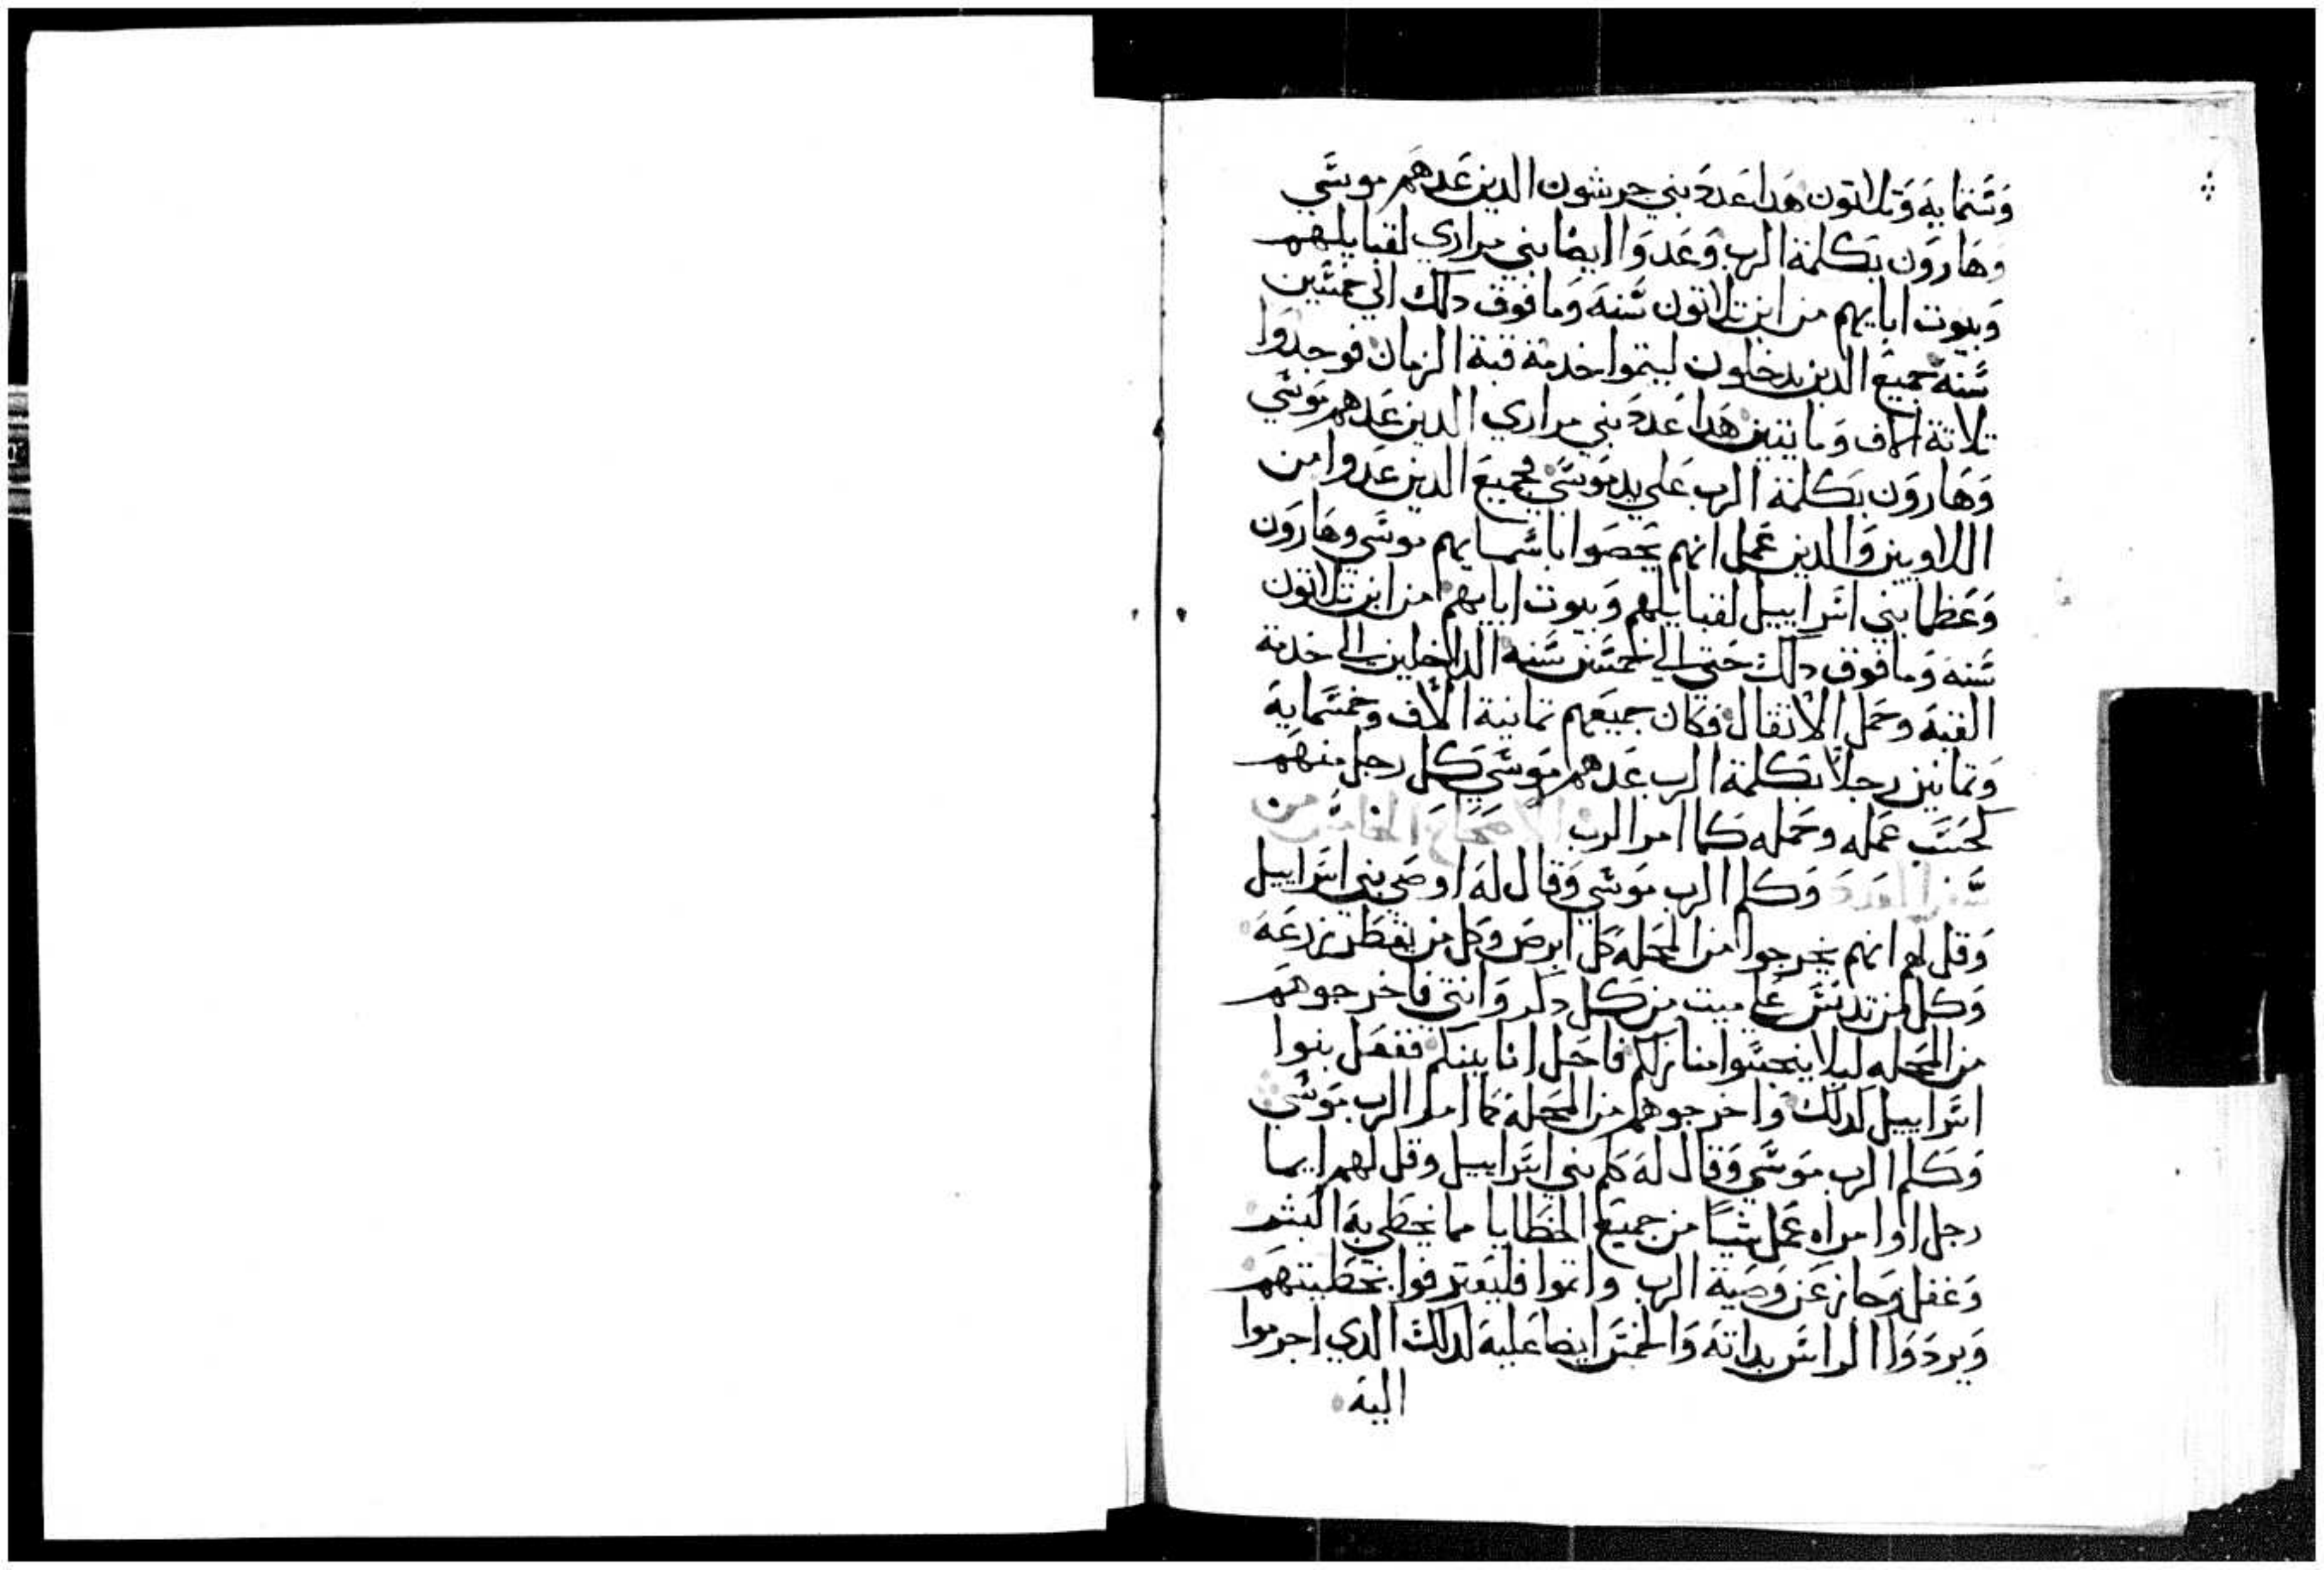 وستمايه وتلاتون هدا عدد بني جرشون الدين عدهم موسي
وهارون بكلمة الرب وعدوا ايضا بني مراري لقبايلهم
وبيوت ابايهم من ابن تلاتون سنه وما فوق دلك الي خمسين
سنه جميع الدين يدخلون ليتموا خدمة قبة الزمان فوجدوا
تلاتة الاف ومايتين هدا عدد بني مراري الدين عدهم موسي
وهارون بكلمة الرب علي يد موسي فجميع الدين عدوا من
اللاويين والدين عمل انهم يحصوا باسمايهم موسي وهارون
وعظما بني اسراييل لقبايلهم وبيوت ابايهم من ابن تلاتون
سنه وما فوق دلك حتي الي خمسين سنه الداخلين الي خدمة
القبه وحمل الاتقال فكان جميعهم تمانية الاف وخمسمايه
وتمانين رجلا بكلمة الرب عدهم موسي كل رجل منهم
كحسب عمله وحمله كما امر الرب الاصحاح الخامس من
سفر العدد وكلم الرب موسي وقال له اوصي بني اسراييل
وقل لهم انهم يخرجوا من المحله كل ابرص وكل من يقطر زرعه
وكل من تدنس علي ميت من كل دكر وانتي فاخرجوهم
من المحله ليلا ينجسوا منازلكم فاحل انا بينكم ففعل بنوا
اسراييل كدلك واخرجوهم من المحله كما امر الرب موسي
وكلم الرب موسي وقال له كلم بني اسراييل وقل لهم ايما
رجل او امراه عمل شيا من جميع الخطايا مما يخطي به البشر
وغفل وحاز عن وصية الرب واتموا فليعترفوا بخطيتهم
ويردوا الراس بداته والخمس ايضا عليه لدلك الدي اجرموا
اليه